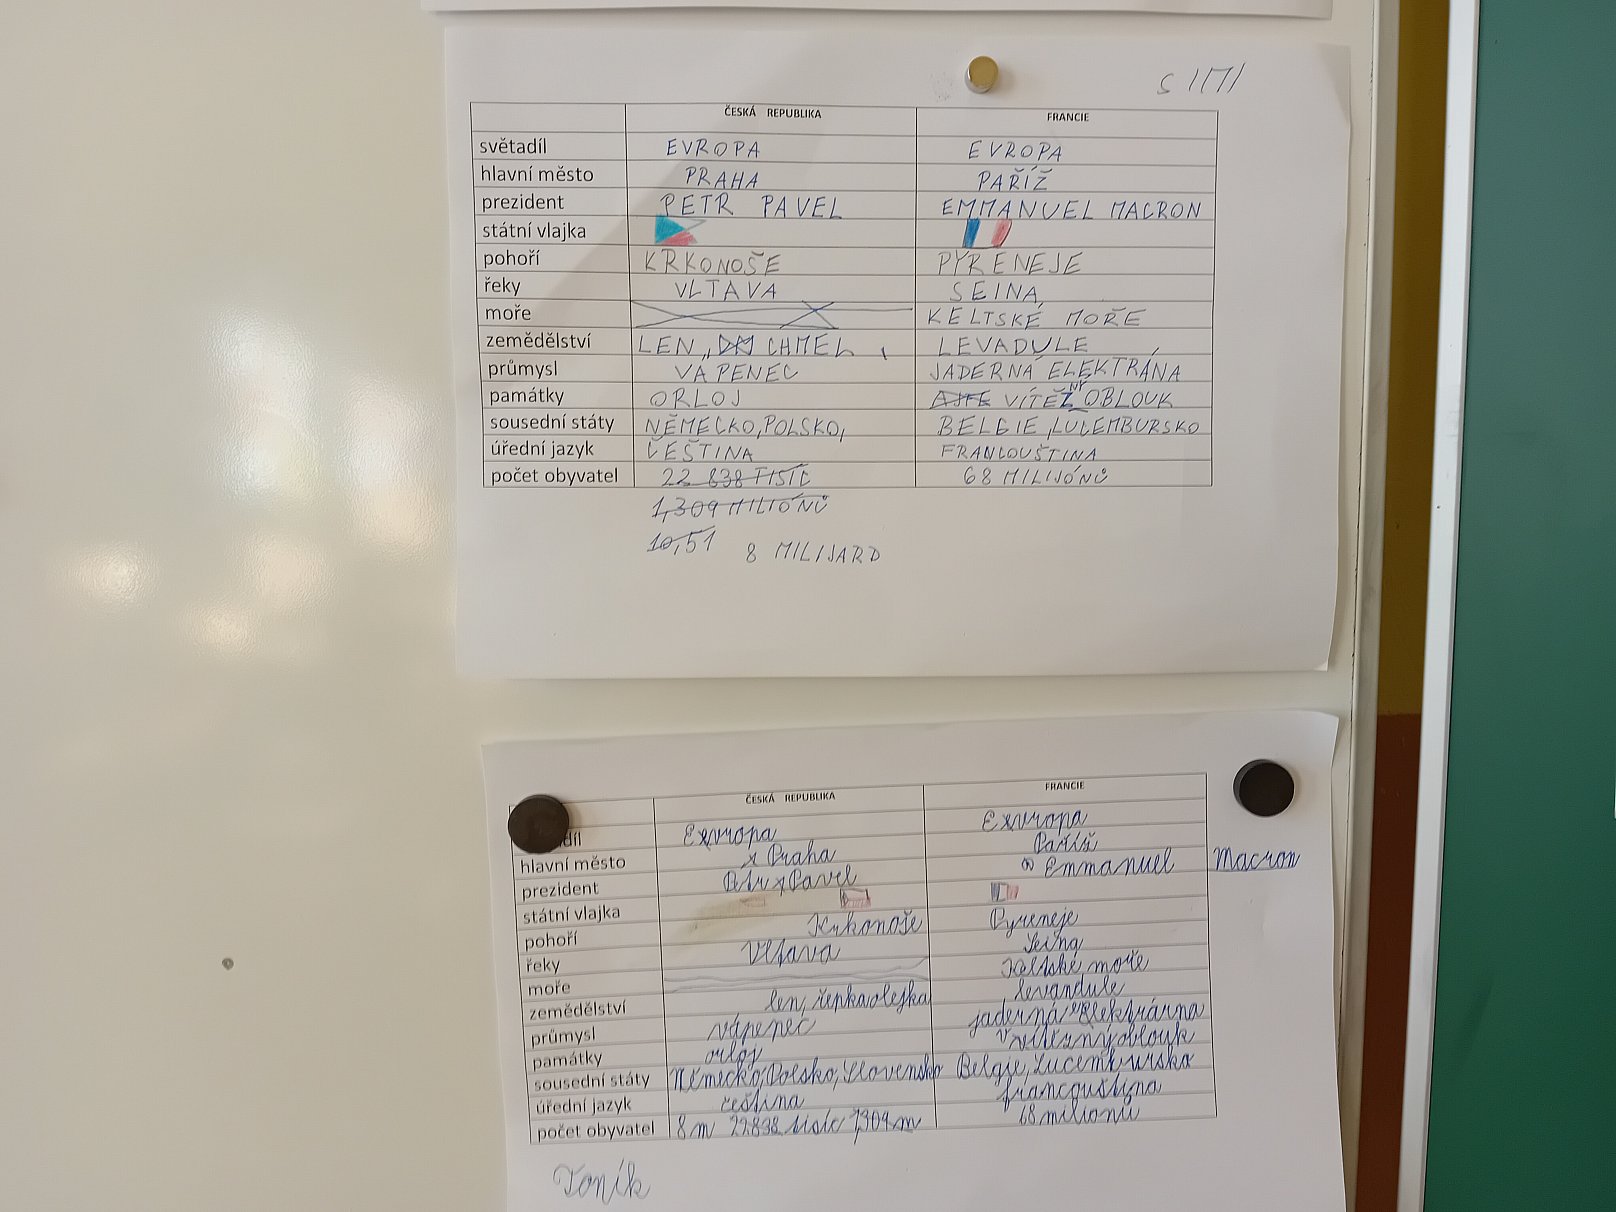 ČESKÁ REPUBLIKA FRANCIE
světadíl EVROPA EVROPA
hlavní město PRAHA PAŘÍŽ
prezident PETR PAVEL EMMANUEL MACRON
státní vlajka
pohoří KRKONOŠE PYRENEJE
řeky VLTAVA SEINA
moře KELTSKÉ MOŘE
zemědělství LEN, CHMEL, LEVADULE
průmysl VÁPENEC JADERNÁ ELEKTRÁNA
památky ORLOJ VÍTĚZNÝ OBLOUK
sousední státy NĚMECKO, POLSKO, BELGIE, LUCEMBURSKO
úřední jazyk ČEŠTINA FRANCOUŠTINA
počet obyvatel 22 838 TISÍC 68 MILIJÓNŮ
1,309 MILIÓNŮ
10,51 8 MILIJARD
ČESKÁ REPUBLIKA FRANCIE
díl Evropa Evropa
hlavní město Praha Paříš
prezident Petr Pavel Emmanuel Macron
státní vlajka
pohoří Krkonoše Pyreneje
řeky Vltava Seina
moře Keltské moře
zemědělství len, řepka olejka levandule
průmysl vápenec jaderná elektrárna
památky orloj vítězný oblouk
sousední státy Německo, Polsko, Slovensko Belgie, Lucembursko
úřední jazyk čeština francouština
počet obyvatel 8 m 22838 tisíc 1,309 m 68 milionů
Toník